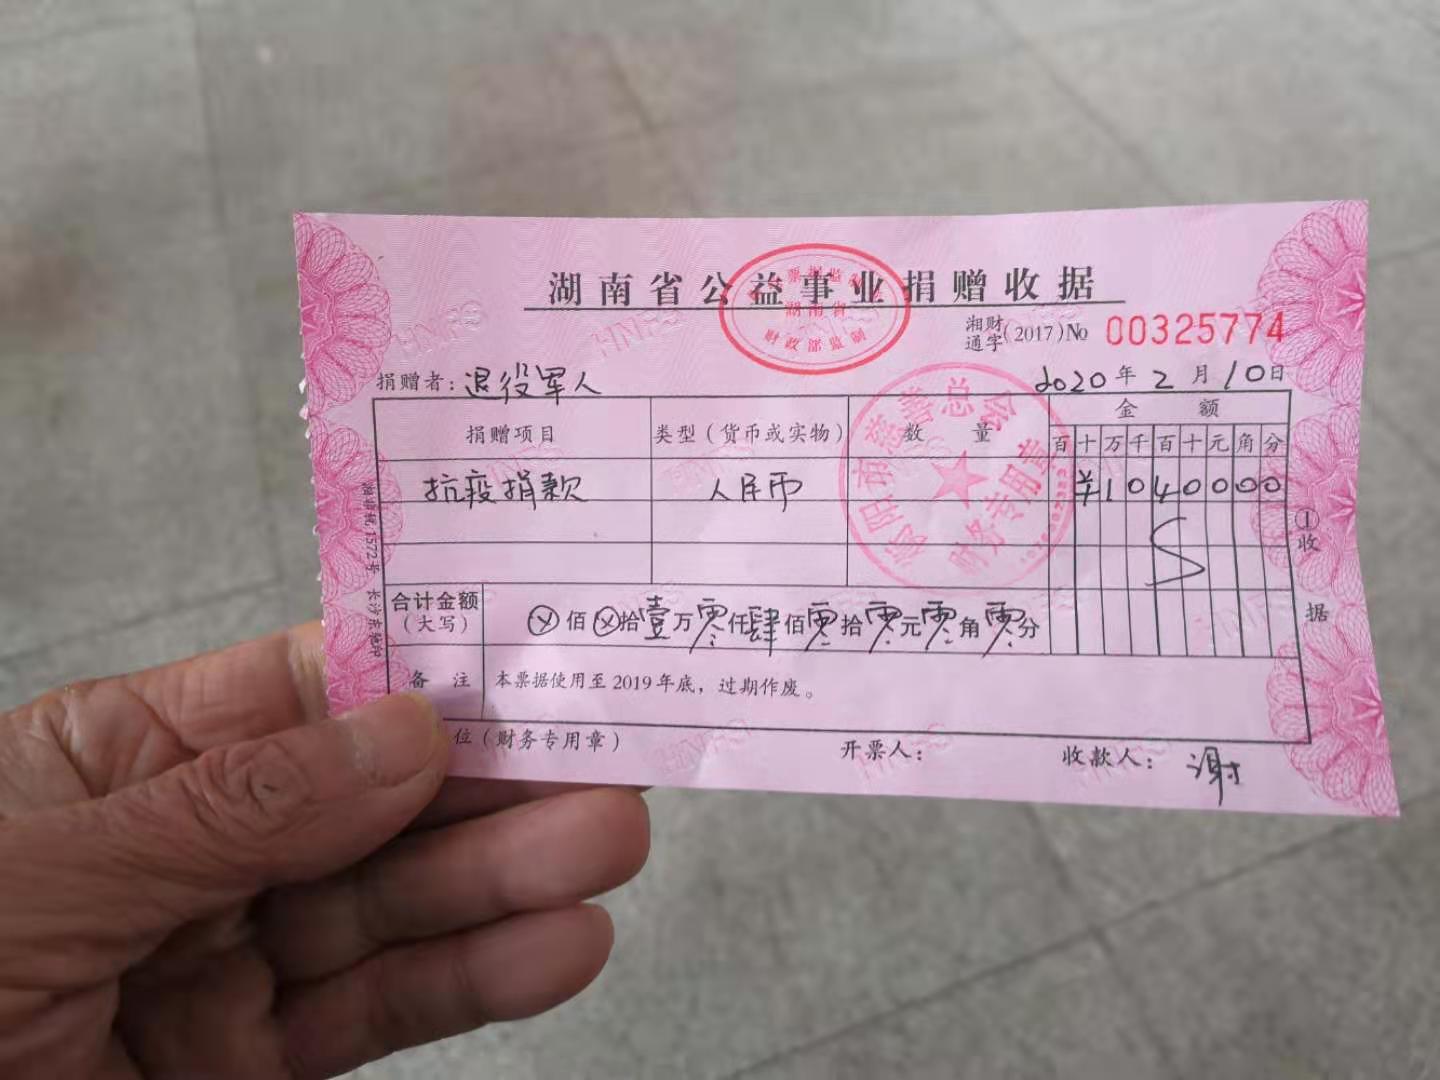 湖南省公益事业捐赠收据
湖南省
财政部监制
湘财通字(2017)No 00325774
捐赠者:退役军人 2020年2月10日
捐赠项目 类型(货币或实物) 数量 金额
百 十 万 千 百 十 元 角 分
抗疫捐款 人民币 ¥1040000
市慈善总会
财务专用章
合计金额(大写) ⊗佰⊗拾壹万零仟肆佰零拾零元零角零分
备注 本票据使用至2019年底,过期作废。
位(财务专用章) 开票人: 收款人:谢
①收据